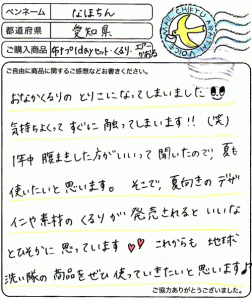 ペンネーム なほちん
都道府県 愛知県
ご購入商品
ご自由に商品に関するご感想などお書きください。
おなかくるりの とりこになってしまいました
気持ちよくって すぐに 触ってしまいます!! (笑)
1年中 腹まきした方がいいって 聞いたので、夏も
使いたいと 思います。 そこで、夏向きの デザ
インや素材の くるりが 発売されると いいな
とひそかに 思っています これからも 地球
洗い隊の 商品を ぜひ 使っていきたいと 思います♪
ご協力ありがとうございました。